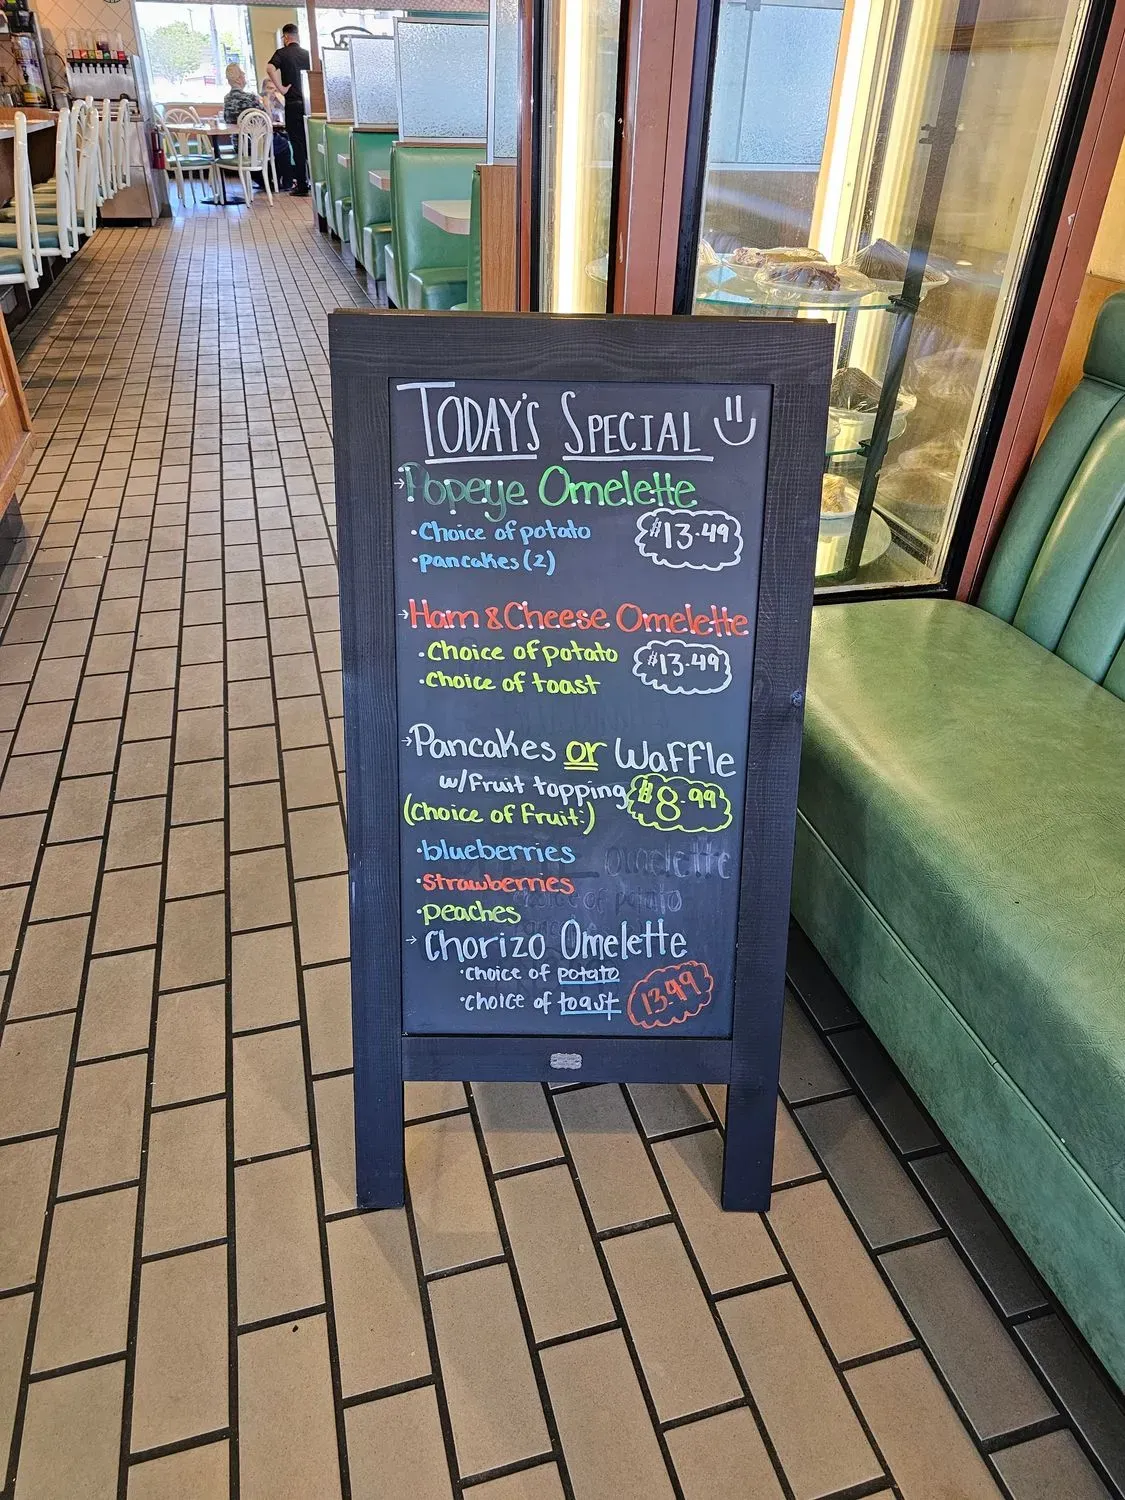 TODAY'S SPECIAL
→Popeye Omelette
·Choice of potato
$13.49
·pancakes (2)
→Ham & Cheese Omelette
·Choice of potato
$13.49
·choice of toast
→Pancakes or Waffle
w/Fruit topping
$8.99
(Choice of Fruit:)
·blueberries
omelette
·strawberries
choice of potato
·peaches
→Chorizo Omelette
·choice of potato
13.49
·choice of toast